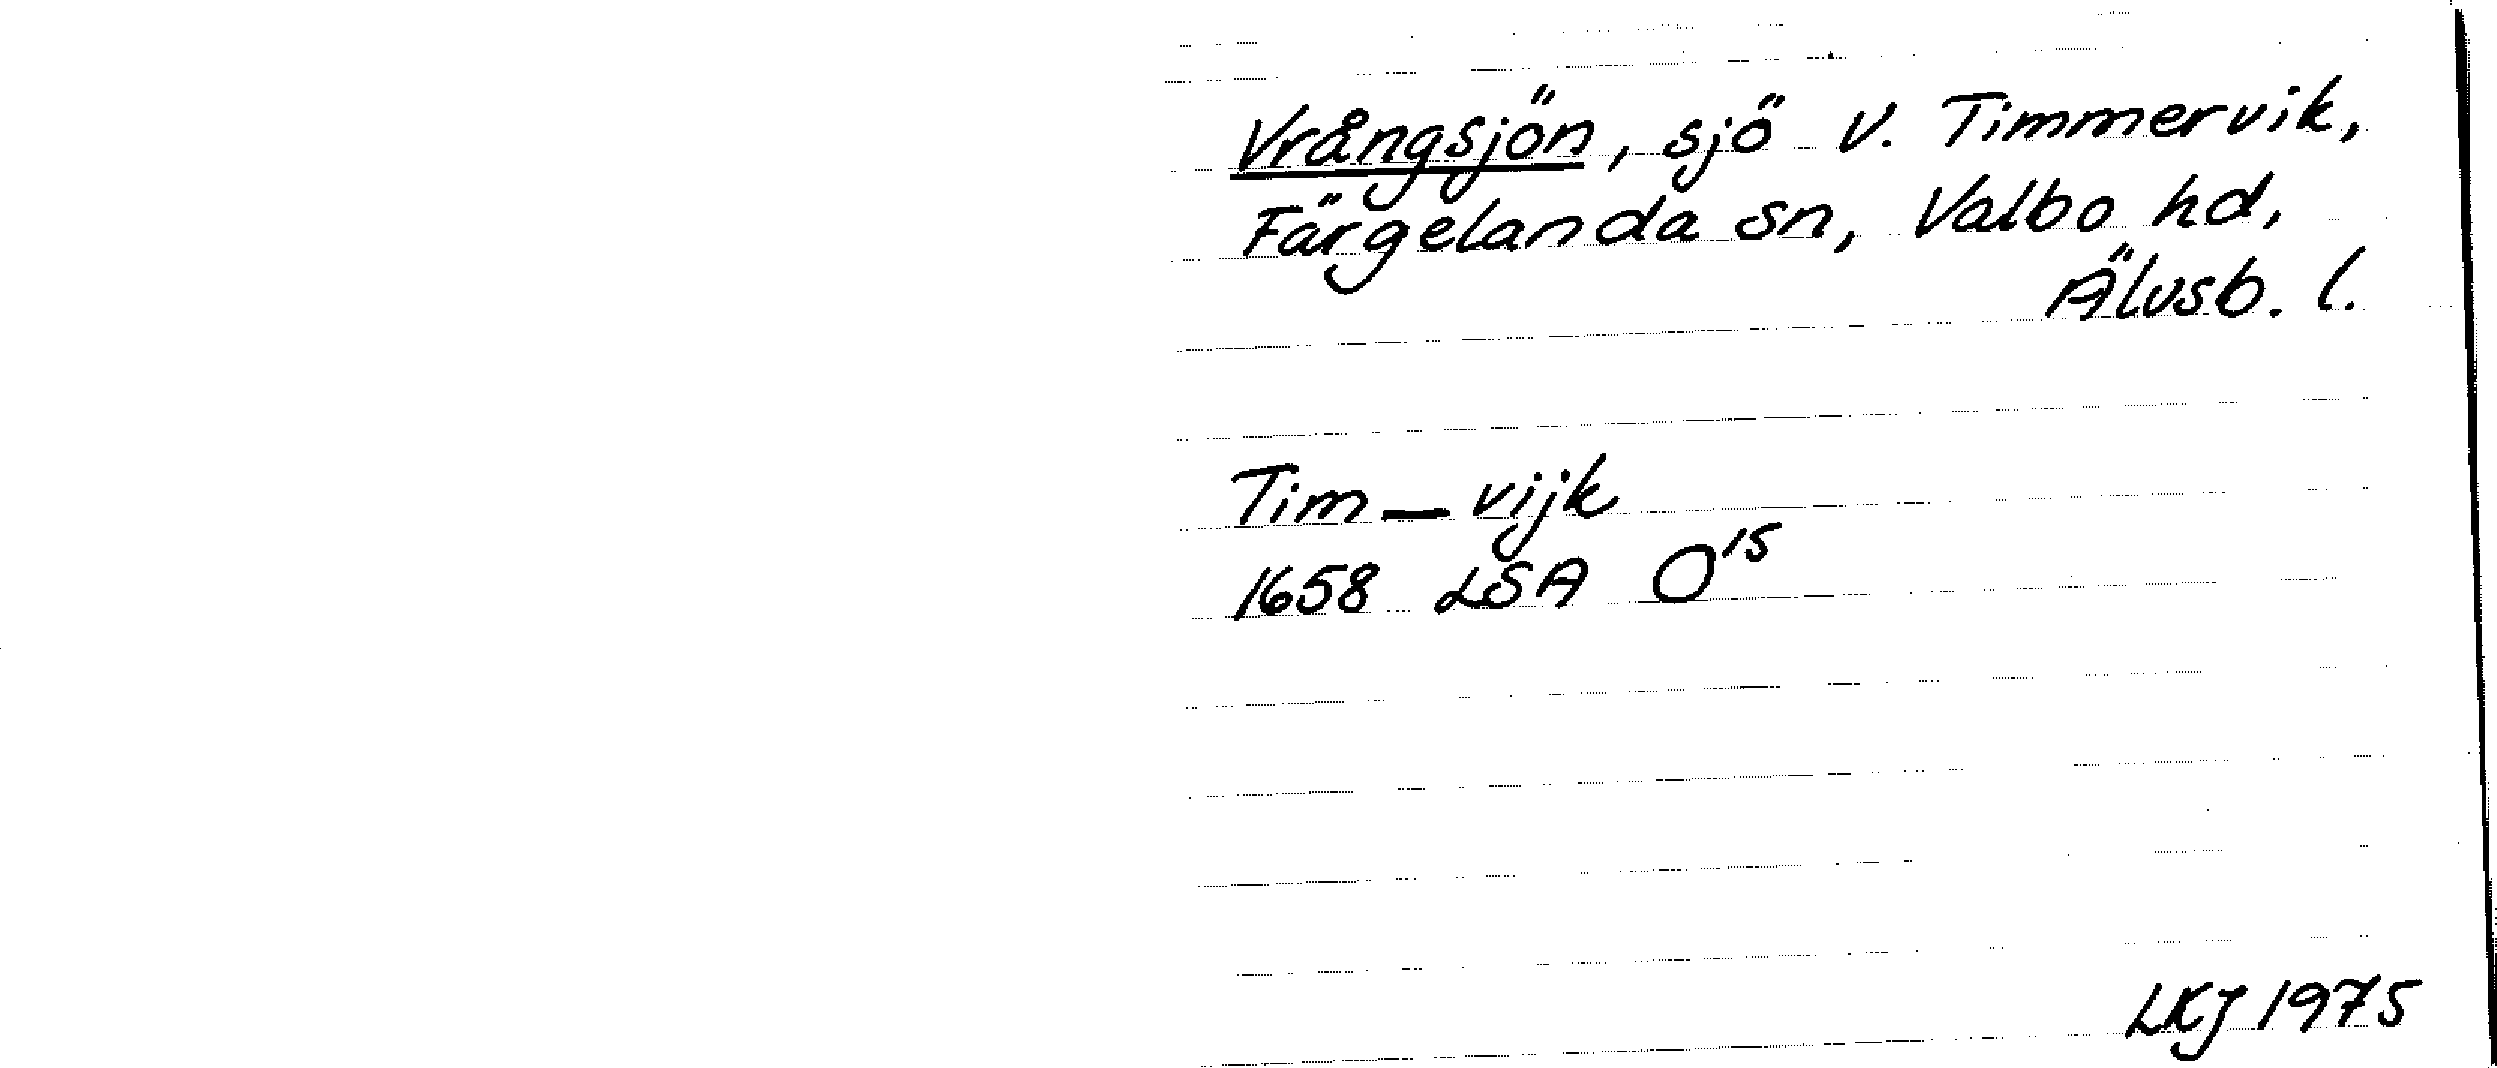 Vrångsjön, sjö v. Timmervik,
Färgelanda sn, Valbo hd,
Älvsb. l.
Tim – vijk
1658 LSA O¹⁵
LKJ 1975